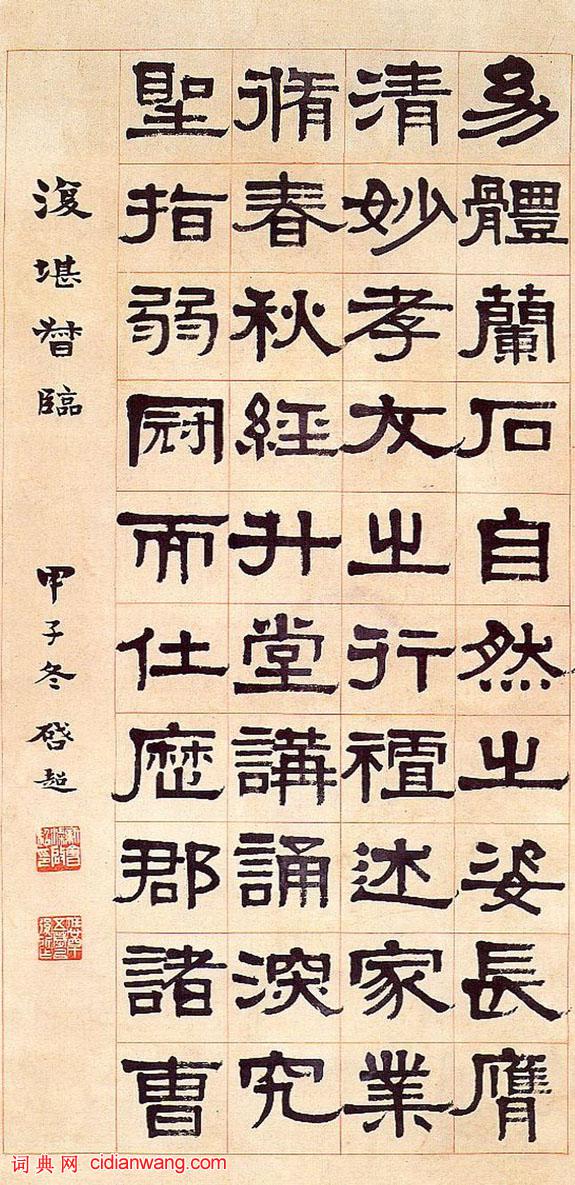 幼體蘭石自然之姿長膺
清妙孝友之行述家業
脩春秋經升堂講誦深究
聖指弱冠而仕歷郡諸曹
復堪督臨 甲子冬 啓超
新會梁啟超印
词典网 cidianwang.com